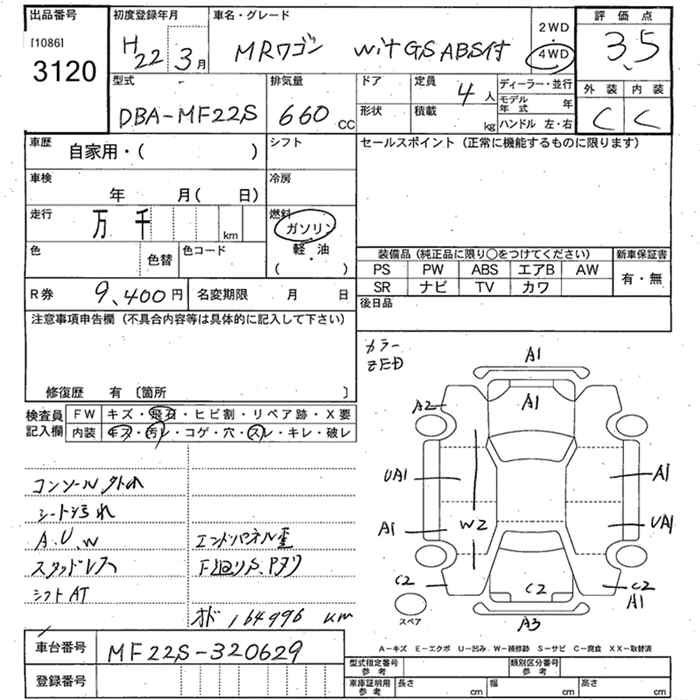 出品番号
[1086]
3120
初度登録年月
H22 3月
車名・グレード
MRワゴン witGS ABS付
2WD
4WD
評価点
3.5
外装 内装
C C
型式
DBA-MF22S
排気量
660 CC
ドア
形状
定員
4人
積載
kg
ディーラー・並行
モデル年式 年
ハンドル 左・右
車歴
自家用・( )
シフト
セールスポイント (正常に機能するものに限ります)
車検
年 月( 日)
冷房
走行
万 千 km
燃料
ガソリン
軽・油
( )
色
色替
色コード
装備品 (純正品に限り○をつけてください)
新車保証書
PS PW ABS エアB AW
SR ナビ TV カワ
有・無
R券
9,400円
名変期限 月 日
後日品
注意事項申告欄 (不具合内容等は具体的に記入して下さい)
修復歴 有 〔箇所 〕
カラー
ZED
検査員記入欄
FW キズ・飛石・ヒビ割・リペア跡・X要
内装 キズ・汚レ・コゲ・穴・スレ・キレ・破レ
コンソール外れ
シート汚れ
A.U.W
スタッドレス
シフトAT
エンドパネル歪
オド 164996 km
A1
A1
A2
UA1
A1
A1
W2
UA1
C2
C2
C2
A1
A3
スペア
A-キズ E-エクボ U-凹み W-補修跡 S-サビ C-腐食 XX-取替済
車台番号
MF22S-320629
登録番号
型式指定番号 参考
類別区分番号 参考
車庫証明用 参考
長さ cm
幅 cm
高さ cm